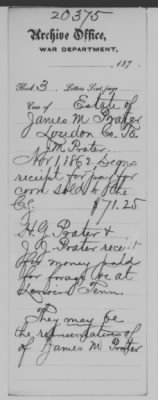 20375
Archive Office,
WAR DEPARTMENT,
, 187 .
Book 3 Letters Sent, page
Case of Estate of
James M Prater
Loudon Co. Tn.
J M Prater.
Nov 1, 1862 signs
receipt for pay for
corn sold to the
C.S. $71.25
H. G. Prater &
J. A. Prater receipt
for money paid
for forage &c at
Lenoirs Tenn.
They may be
the representatives of
of James M Prater